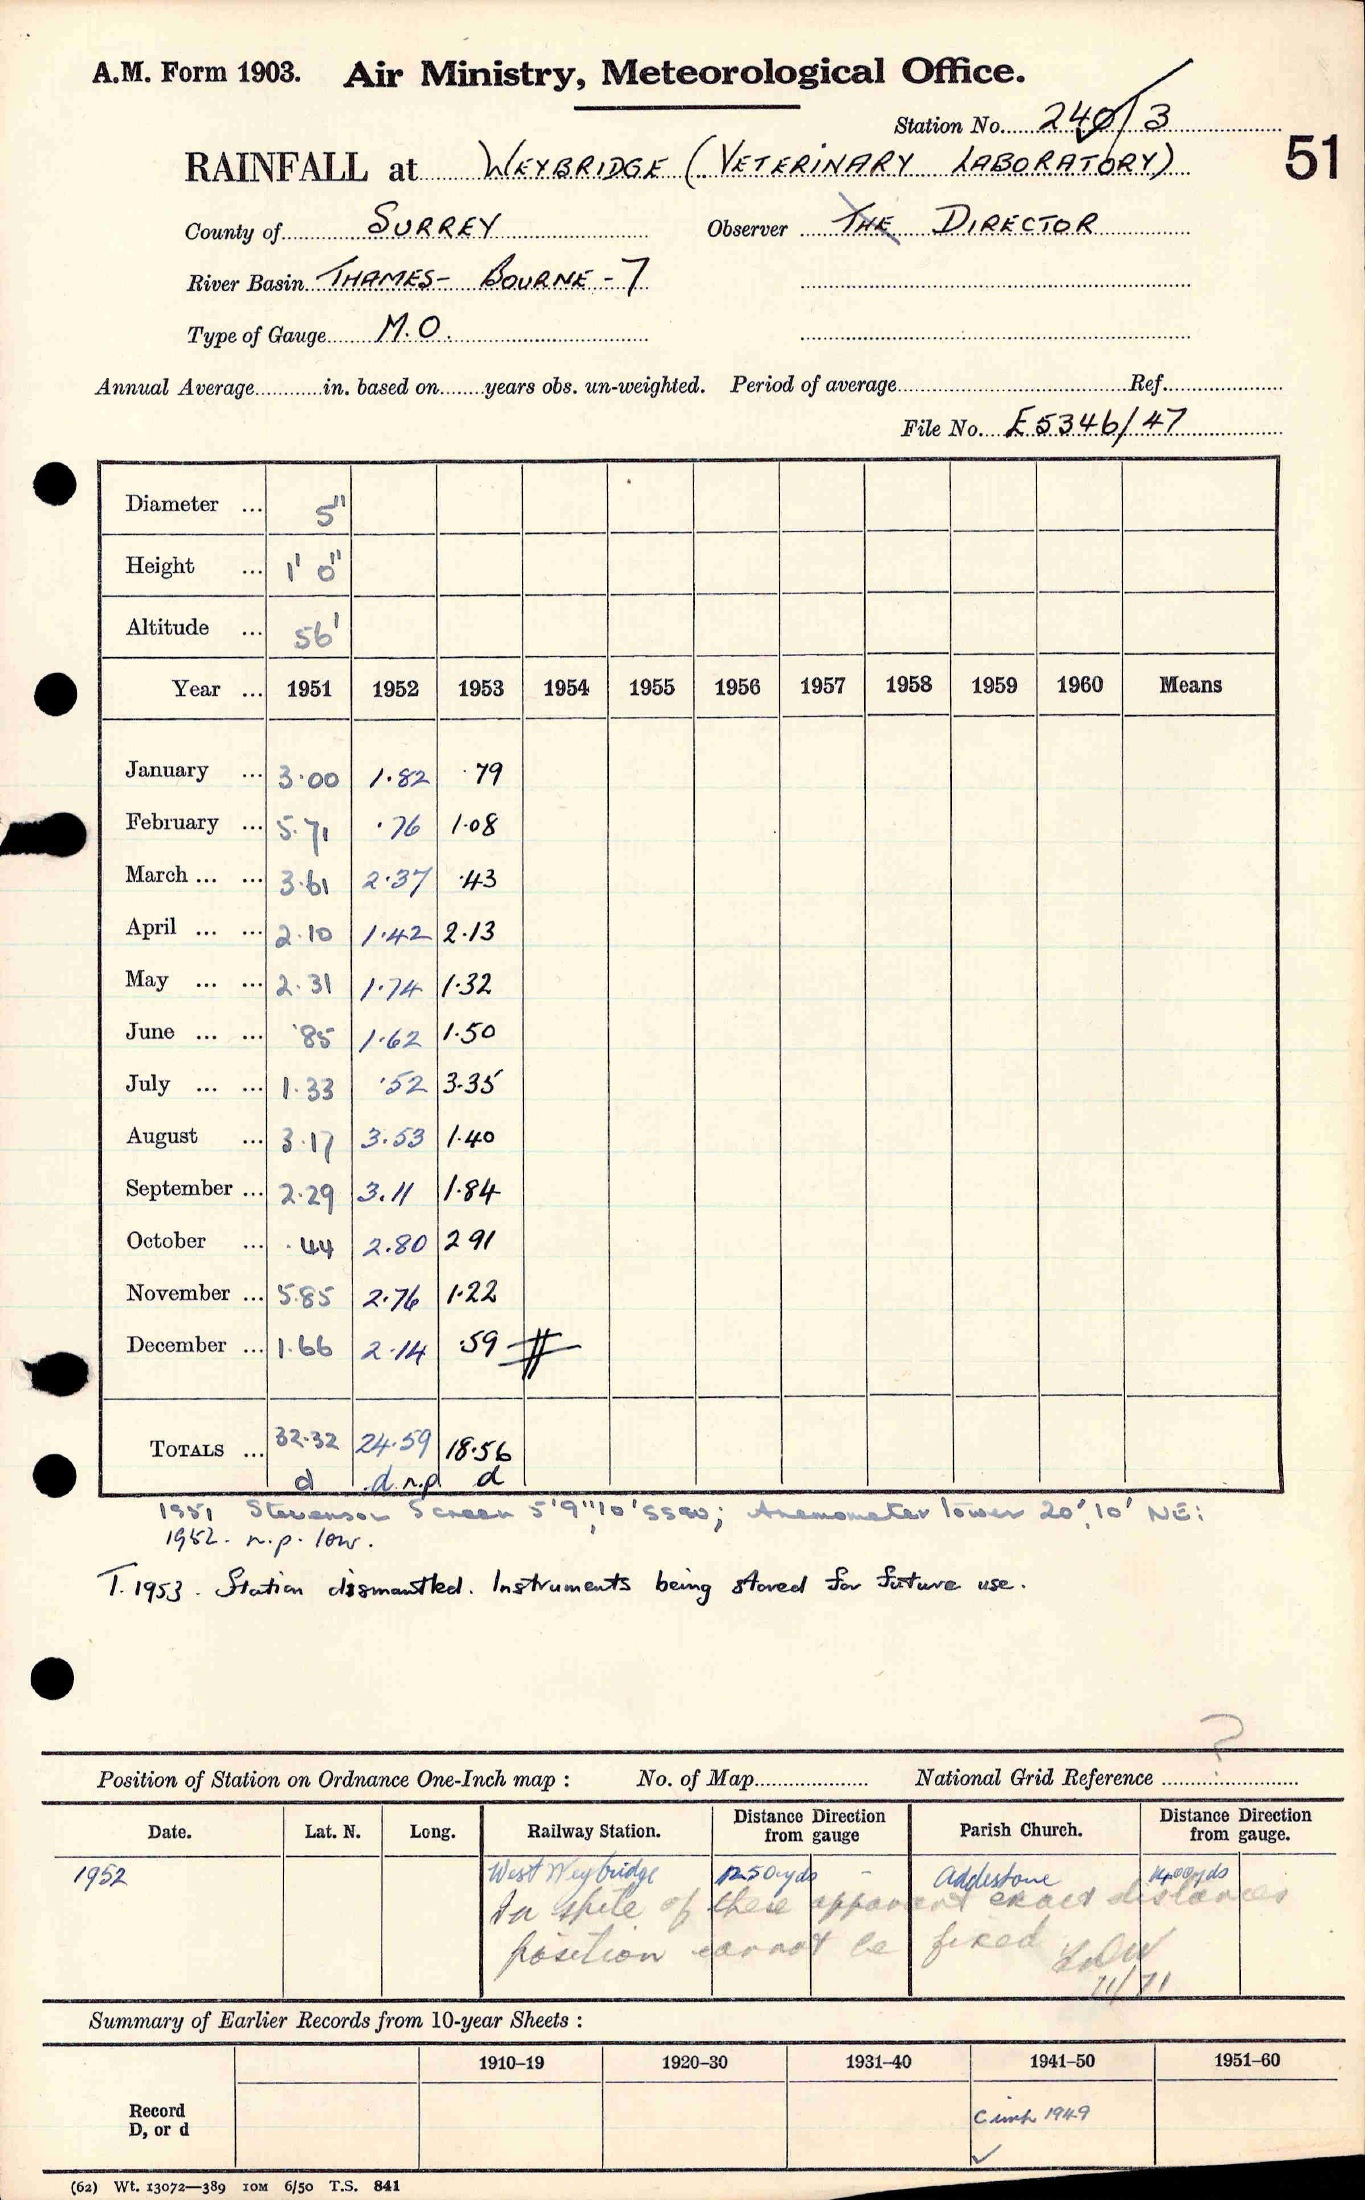 A.M. Form 1903. Air Ministry, Meteorological Office.
Station No. 240/3
RAINFALL at WEYBRIDGE (VETERINARY LABORATORY) 51
County of SURREY Observer THE DIRECTOR
River Basin THAMES - BOURNE - 7
Type of Gauge M.O.
Annual Average............in. based on........years obs. un-weighted. Period of average........................Ref.
File No. E5346/47
Diameter ... 5"
Height ... 1' 0"
Altitude ... 56'
Year ... 1951 1952 1953 1954 1955 1956 1957 1958 1959 1960 Means
January ... 3.00 1.82 .79
February ... 5.71 .76 1.08
March ... ... 3.61 2.37 .43
April ... ... 2.10 1.42 2.13
May ... ... 2.31 1.74 1.32
June ... ... .85 1.62 1.50
July ... ... 1.33 .52 3.35
August ... 3.17 3.53 1.40
September ... 2.29 3.11 1.84
October ... .44 2.80 2 91
November ... 5.85 2.76 1.22
December ... 1.66 2.14 .59
TOTALS ... 32.32 24.59 18.56
d d n.p. d
1951 Stevenson Screen 5'9", 10' SSW; Anemometer tower 20', 10' NE:
1952. n.p. low.
T. 1953. Station dismantled. Instruments being stored for future use.
?
Position of Station on Ordnance One-Inch map : No. of Map.................... National Grid Reference
Date. Lat. N. Long. Railway Station. Distance from gauge Direction Parish Church. Distance from gauge. Direction
1952 West Weybridge 1250 yds - Addlestone 1400 yds
In spite of these apparent exact distances
position cannot be fixed
11/71
Summary of Earlier Records from 10-year Sheets :
1910–19 1920–30 1931–40 1941–50 1951–60
Record
D, or d
1949
(62) Wt. 13072—389 10M 6/50 T.S. 841